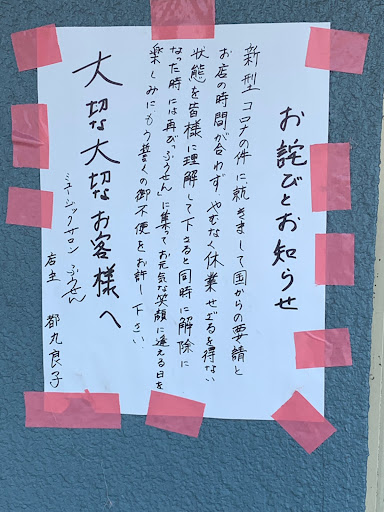 お詫びとお知らせ
新型コロナの件に就きまして国からの要請と
お店の時間が合わず やむなく休業せざるを得ない
状態を皆様に理解して下さると同時に解除に
なった時には再び"ふうせん"に集って お元気な笑顔に逢える日を
楽しみに もう暫くの御不便をお許し下さい
大切な大切なお客様へ
ミュージックサロン ふうせん
店主 都丸良子